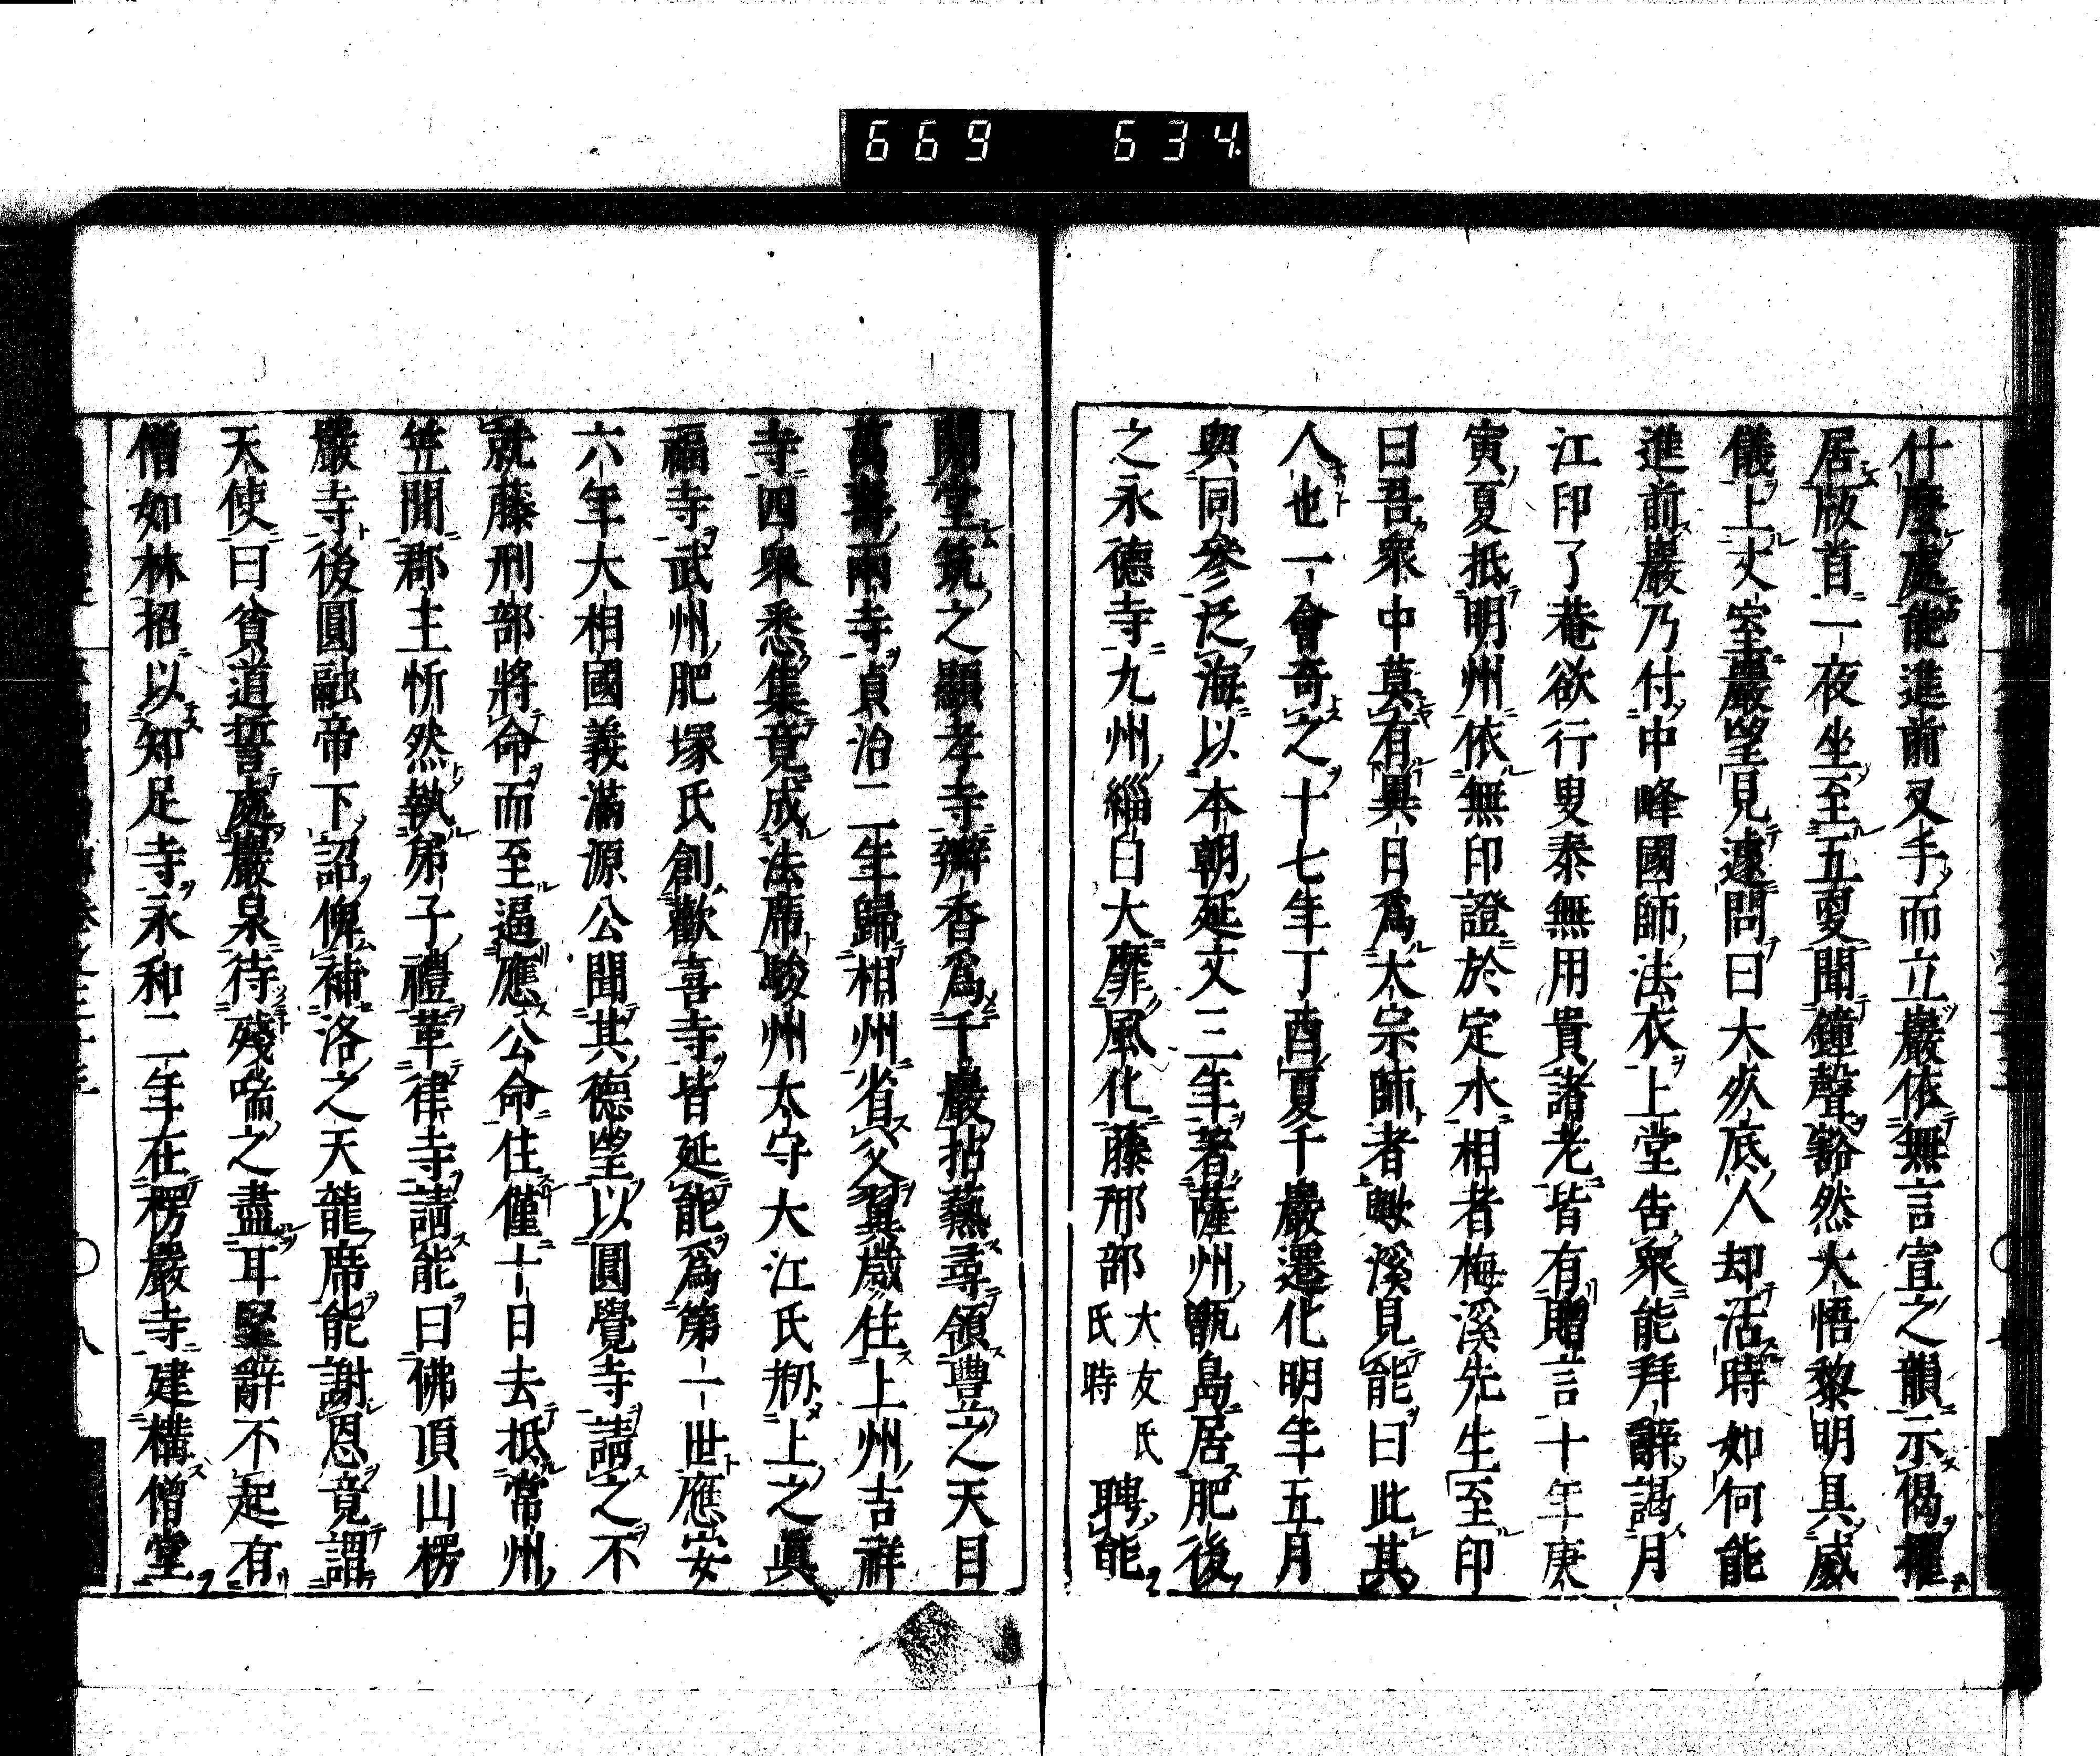 669 634.
什麼處能進前叉手而立巖依無言宣之韻示偈擢
居版首一夜坐至五更聞鐘聲豁然大悟黎明具威
儀上丈室巖望見遽問曰大死底人却活時如何能
進前巖乃付中峰國師法衣上堂告衆能拜辭謁月
江印了菴欲行叟泰無用貴諸老皆有贈言十年庚
寅夏抵明州依無印證於定水相者梅溪先生至印
曰吾衆中莫有異日爲大宗師者歟溪見能曰此其
人也一會奇之十七年丁酉夏千巖遷化明年五月
與同參泛海以本朝延文三年著薩州甑島居肥後
之永德寺九州緇白大靡風化藤刑部大友氏氏時聘能
開堂筑之顯孝寺瓣香爲千巖拈爇尋領豐之天目
萬壽兩寺貞治二年歸相州省父翼歲住上州吉祥
寺四衆悉集竟成法席駿州太守大江氏剏上之眞
福寺武州肥塚氏創歡喜寺皆延能爲第一世應安
六年大相國義滿源公聞其德望以圓覺寺請之不
就藤刑部將命而至逼應公命住僅十日去抵常州
笠間郡主忻然執弟子禮革律寺請能曰佛頂山楞
嚴寺後圓融帝下詔俾補洛之天龍席能謝恩竟謂
天使曰貧道誓處巖泉待殘喘之盡耳堅辭不起有
僧如林招以知足寺永和二年在楞嚴寺建構僧堂